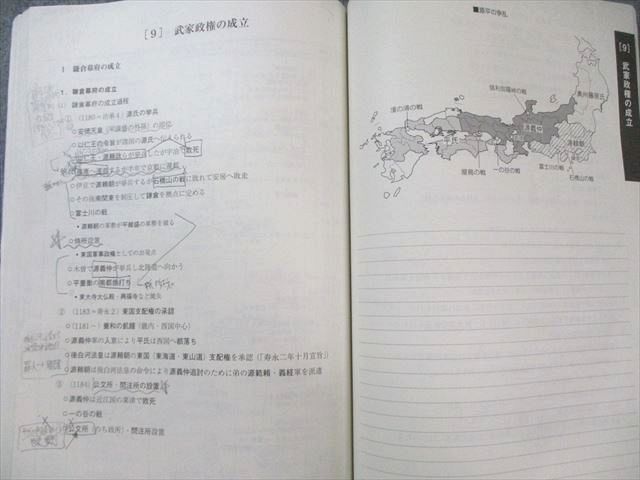 [9] 武家政権の成立
1 鎌倉幕府の成立
1. 鎌倉幕府の成立
(1) 鎌倉幕府の成立過程
① (1180=治承4) 源氏の挙兵
○安徳天皇 の即位
○以仁王の令旨が諸国の源氏へ伝えられる
○以仁王・源頼政らが挙兵したが宇治で敗死
○福原へ遷都するが半年で京都に還都
○伊豆で源頼朝が挙兵するが石橋山の戦に敗れて安房へ敗走
○その後南関東を制圧して鎌倉を拠点に定める
○富士川の戦
・源頼朝の軍勢が平維盛の軍勢を破る
○侍所設置
・東国軍事政権としての出発点
○木曽で源義仲が挙兵し北陸道へ向かう
○平重衡の南都焼打ち
・東大寺大仏殿・興福寺など焼失
② (1183=寿永2) 東国支配権の承認
○(1181~) 養和の飢饉 (畿内・西国中心)
○源義仲軍の入京により平氏は西国へ都落ち
○後白河法皇は源頼朝の東国〔東海道・東山道〕支配権を承認 (「寿永二年十月宣旨」)
○源頼朝は後白河法皇の命令により源義仲追討のために弟の源範頼・義経軍を派遣
③ (1184) 公文所・問注所の設置
○源義仲は近江国の粟津で敗死
○一の谷の戦
○公文所 (のち政所)・問注所設置
■源平の争乱
奥州藤原氏
倶利伽羅峠の戦
壇の浦の戦
源義仲
平氏
源頼朝
富士川の戦
石橋山の戦
一の谷の戦
屋島の戦
[9] 武家政権の成立